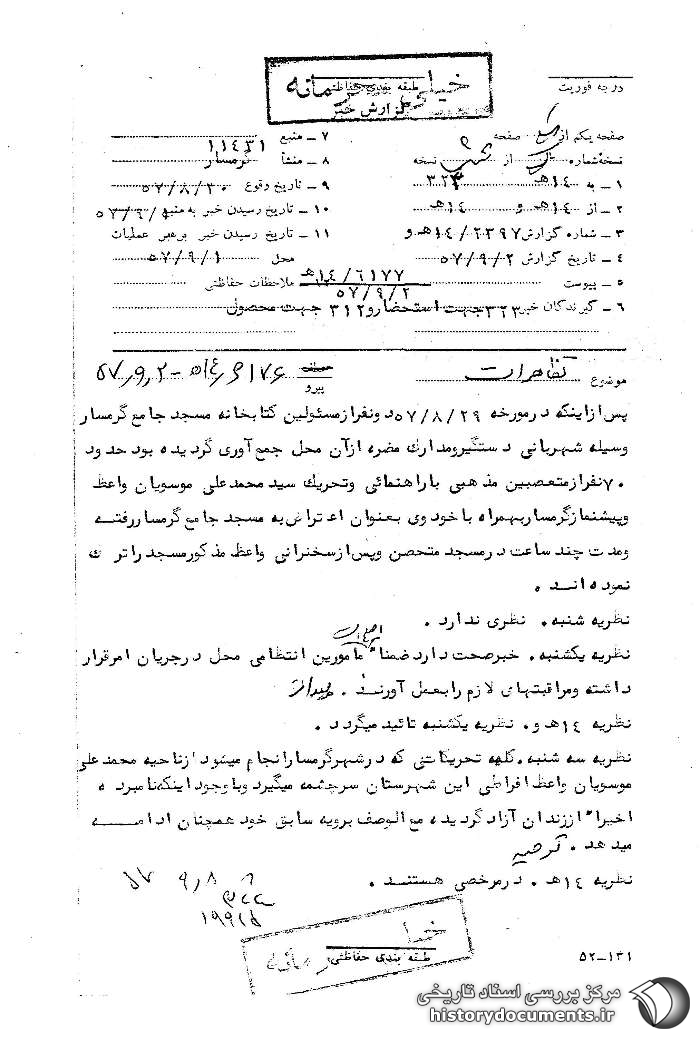 درجه فوریت
خیلی محرمانه
طبقه بندی حفاظتی
گزارش خبر
صفحه یکم از یک صفحه
نسخه شماره یک از نسخه
۱ ـ به ۱۴هـ ۳۲۳
۲ ـ از ۱۴هـ و ۱۴هـ
۳ ـ شماره گزارش ۱۴/۲۳۹۷هـ و
۴ ـ تاریخ گزارش ۵۷/۹/۲
۵ ـ پیوست
۶ ـ گیرندگان خبر ۳۲۳جهت استحضارو ۳۱۲ جهت محصول
۷ ـ منبع ۱۱۴۳۱
۸ ـ منشأ گرمسار
۹ ـ تاریخ وقوع ۵۷/۸/۳۰
۱۰ ـ تاریخ رسیدن خبر به منبع
۱۱ ـ تاریخ رسیدن خبر برهبر عملیات
محل ۵۷/۹/۱
ملاحظات حفاظتی
۱۴/۶۱۷۷هـ
۵۷/۹/۲
موضوع تظاهرات
پیرو ۱۴/۶۱۷۶هـ - ۵۷/۹/۲
پس ازاینکه درمورخه ۵۷/۸/۲۹ دونفرازمسئولین کتابخانه مسجد جامع گرمسار
وسیله شهربانی دستگیرومدارک مضره ازآن محل جمع آوری گردیده بود حدود
۷۰نفرازمتعصبین مذهبی باراهنمائی وتحریک سید محمدعلی موسویان واعظ
وپیشنمازگرمساربهمراه باخودوی بعنوان اعتراض به مسجد جامع گرمساررفته
ومدت چند ساعت درمسجد متحصن وپس ازسخنرانی واعظ مذکورمسجدراترک
نموده اند .
نظریه شنبه . نظری ندارد .
نظریه یکشنبه . خبرصحت دارد ضمنا" مأمورین انتظامی محل درجریان امرقرار
داشته ومراقبتهای لازم رابعمل آورند .
نظریه ۱۴هـ و . نظریه یکشنبه تائید میگردد .
نظریه سه شنبه . کلیه تحریکاتی که درشهرگرمسارانجام میشود ازناحیه محمدعلی
موسویان واعظ افراطی این شهرستان سرچشمه میگیرد وباوجود اینکه نامبرده
اخیرا" اززندان آزاد گردیده مع الوصف برویه سابق خود همچنان ادامه
میدهد .
نظریه ۱۴هـ . درمرخصی هستند .
خیلی محرمانه
طبقه بندی حفاظتی
۵۲-۱۳۱
مرکز بررسی اسناد تاریخی
historydocuments.ir